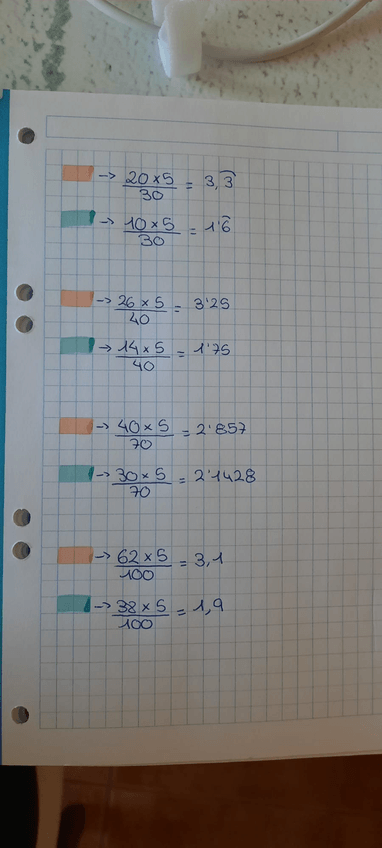 → 20 x 5 / 30 = 3,3̄
→ 10 x 5 / 30 = 1'6̄
→ 26 x 5 / 40 = 3'25
→ 14 x 5 / 40 = 1'75
→ 40 x 5 / 70 = 2'857
→ 30 x 5 / 70 = 2'1428
→ 62 x 5 / 100 = 3,1
→ 38 x 5 / 100 = 1,9